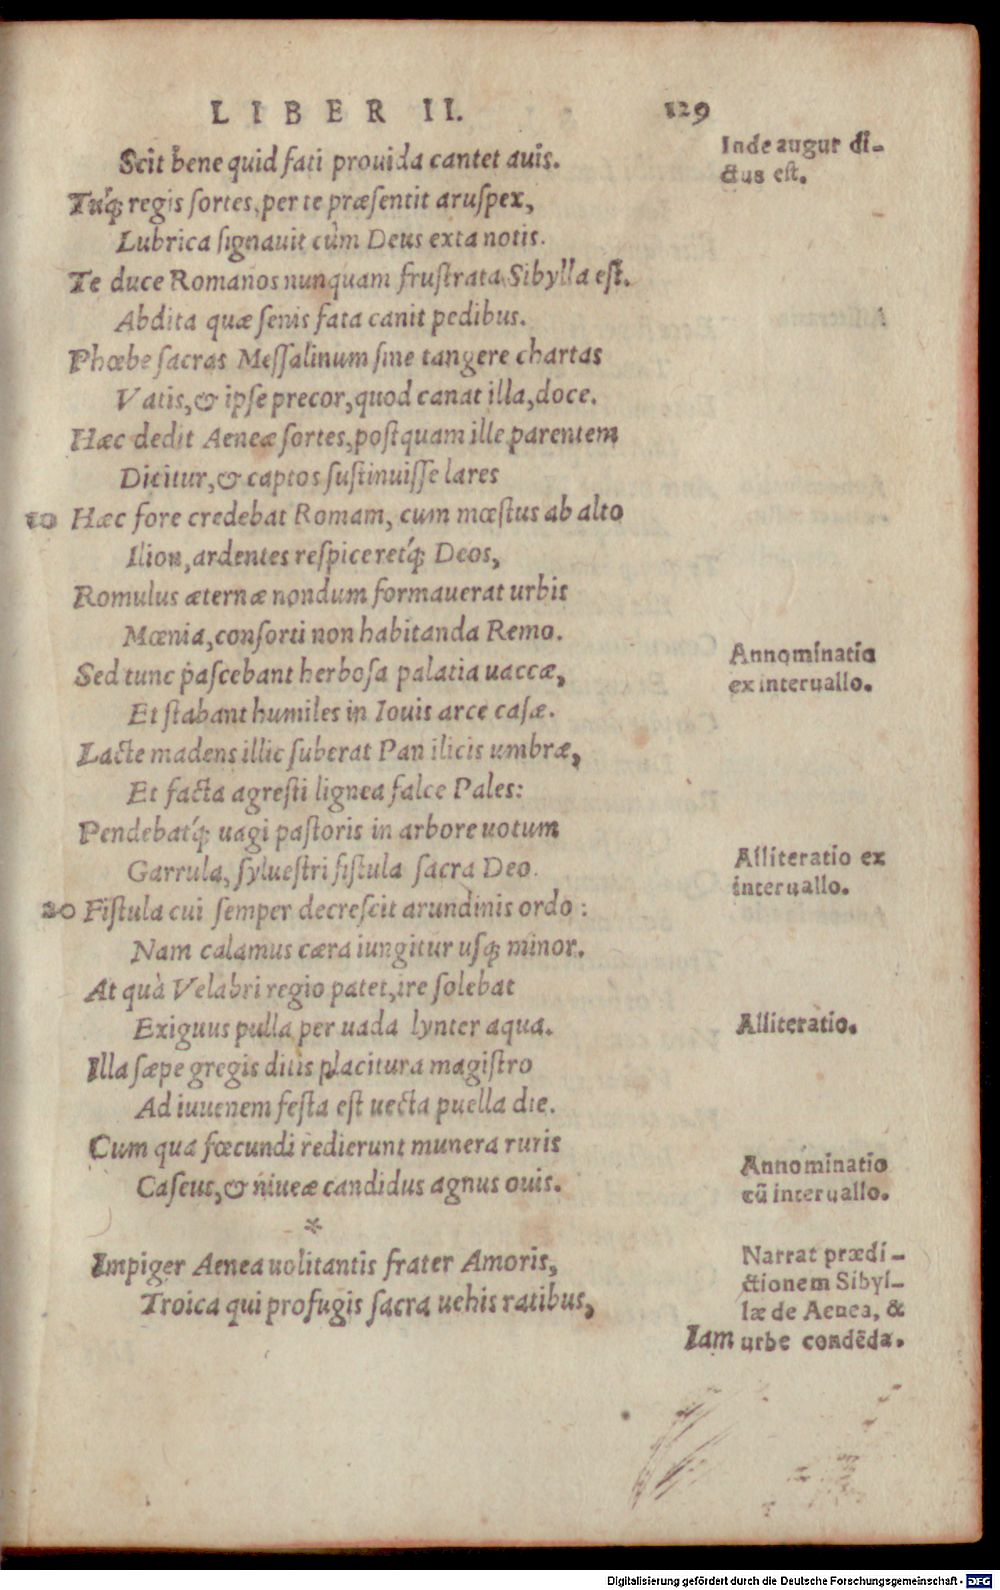 LIBER II. 129
Scit bene quid fati prouida cantet auis.
Tuq́; regis sortes, per te præsentit aruspex,
Lubrica signauit cùm Deus exta notis.
Te duce Romanos nunquam frustrata Sibylla est.
Abdita quæ senis fata canit pedibus.
Phœbe sacras Messalinum sine tangere chartas
Vatis, & ipse precor, quod canat illa, doce.
Hæc dedit Aeneæ sortes, postquam ille parentem
Dicitur, & captos sustinuisse lares
10 Hæc fore credebat Romam, cum mœstus ab alto
Ilion, ardentes respiceretq́; Deos,
Romulus æternæ nondum formauerat urbis
Mœnia, consorti non habitanda Remo.
Sed tunc pascebant herbosa palatia uaccæ,
Et stabant humiles in Iouis arce casæ.
Lacte madens illic suberat Pan ilicis umbræ,
Et facta agresti lignea falce Pales:
Pendebatq́; uagi pastoris in arbore uotum
Garrula, syluestri fistula sacra Deo.
20 Fistula cui semper decrescit arundinis ordo:
Nam calamus cæra iungitur usq; minor.
At quà Velabri regio patet, ire solebat
Exiguus pulla per uada lynter aqua.
Illa sæpe gregis ditis placitura magistro
Ad iuuenem festa est uecta puella die.
Cum qua fœcundi redierunt munera ruris
Caseus, & niueæ candidus agnus ouis.
*
Impiger Aenea uolitantis frater Amoris,
Troica qui profugis sacra uehis ratibus,
Iam
Inde augur di-
ctus est.
Annominatio
ex interuallo.
Alliteratio ex
interuallo.
Alliteratio.
Annominatio
cũ interuallo.
Narrat prædi-
ctionem Sibyl-
læ de Aenea, &
urbe condẽda.
Digitalisierung gefördert durch die Deutsche Forschungsgemeinschaft - DFG